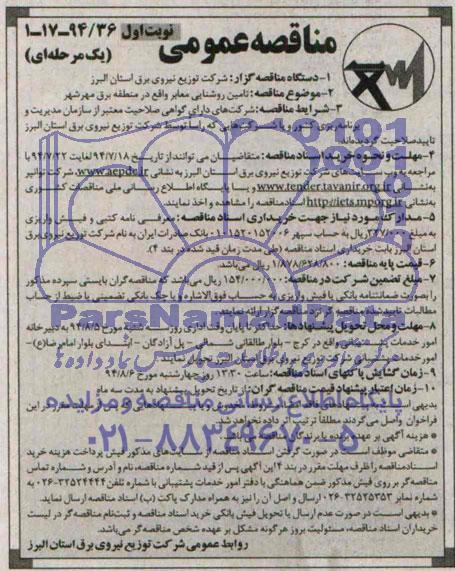 مناقصه عمومی
نوبت اول
۱-۱۷-۹۴/۳۶
(یک مرحله‌ای)
۱-دستگاه مناقصه گزار: شرکت توزیع نیروی برق استان البرز
۲-موضوع مناقصه: تامین روشنایی معابر واقع در منطقه برق مهرشهر
۳-شرایط مناقصه: شرکت‌های دارای گواهی صلاحیت معتبر از سازمان مدیریت و
برنامه‌ریزی کشور و یا شرکت‌هایی که راسا توسط شرکت توزیع نیروی برق استان البرز
تایید صلاحیت گردیده‌اند.
۴-مهلت و نحوه خرید اسناد مناقصه: متقاضیان می توانند از تاریخ ۹۴/۷/۱۸ لغایت ۹۴/۷/۲۲ با
مراجعه به وب سایت‌های شرکت توزیع نیروی برق استان البرز به نشانی www.aepdc.ir، شرکت توانیر
به نشانی www.tender.tavanir.org.ir و یا پایگاه اطلاع رسانی ملی مناقصات کشوری
به نشانی http://iets.mporg.ir اسناد مناقصه را مشاهده و اخذ نمایند.
۵-مدارک مورد نیاز جهت خریداری اسناد مناقصه: معرفی نامه کتبی و فیش واریزی
به مبلغ ۳۲۷/۰۰۰ ریال به حساب سپهر بانک صادرات ایران به نام شرکت توزیع نیروی برق
استان البرز بابت خریداری اسناد مناقصه (طی مدت زمان قید شده در بند ۴).
۶-قیمت پایه مناقصه: ۱/۸۷۸/۶۲۸/۸۰۰ ریال می‌باشد.
۷-مبلغ تضمین شرکت در مناقصه: ۱۵۴/۰۰۰/۰۰۰ ریال می‌باشد که مناقصه گران بایستی سپرده مذکور
را بصورت ضمانتنامه بانکی یا فیش واریزی به حساب فوق الاشاره و یا چک بانکی تضمینی یا ضبط از حساب
مطالبات تایید شده مناقصه گر نزد مناقصه گزار ارائه نمایند.
۸-مهلت و محل تحویل پیشنهادها: حداکثر تا پایان وقت اداری روز سه شنبه مورخ ۹۴/۸/۵ به دبیرخانه
امور خدمات پشتیبانی واقع در کرج - بلوار طالقانی شمالی - پل آزادگان - ابتدای بلوار امام رضا(ع) -
امور خدمات پشتیبانی شرکت توزیع نیروی برق استان البرز تحویل نمایند.
۹-زمان گشایش پاکتهای اسناد مناقصه: ساعت ۱۳:۳۰ روز چهارشنبه مورخ ۹۴/۸/۶
۱۰-زمان اعتبار پیشنهاد قیمت مناقصه گران: از تاریخ تحویل پیشنهاد به مدت سه ماه
فراخوان واصل می‌گردند مطلقا ترتیب اثر داده نخواهد شد.
* هزینه آگهی بر عهده برنده یا برندگان مناقصه می‌باشد.
* متقاضی موظف است در صورت گرفتن اسناد مناقصه از سایت‌های مذکور فیش پرداخت هزینه خرید
اسناد مناقصه را ظرف مهلت مقرر در بند ۴ این آگهی پس از قید شماره مناقصه، نام و آدرس و شماره تماس
مناقصه گر بر روی فیش مذکور ضمن هماهنگی با دفتر امور خدمات پشتیبانی با شماره تلفن ۳۲۵۲۴۴۴۴-۰۲۶ به
شماره نمابر ۳۲۵۲۵۳۵۳-۰۲۶ ارسال و اصل آن را نیز به همراه مدارک پاکت (ب) اسناد مناقصه ارسال نماید.
* بدیهی است در صورت عدم ارسال یا تحویل فیش بانکی خرید اسناد مناقصه و ثبت نام مناقصه گر در لیست
خریداران اسناد مناقصه، مسئولیت بروز هرگونه مشکل بر عهده شخص مناقصه گر می‌باشد.
روابط عمومی شرکت توزیع نیروی برق استان البرز
ParsNamadData
پایگاه اطلاع رسانی مناقصه و مزایده
۰۲۱-۸۸۳۴۹۶۷۰-۵